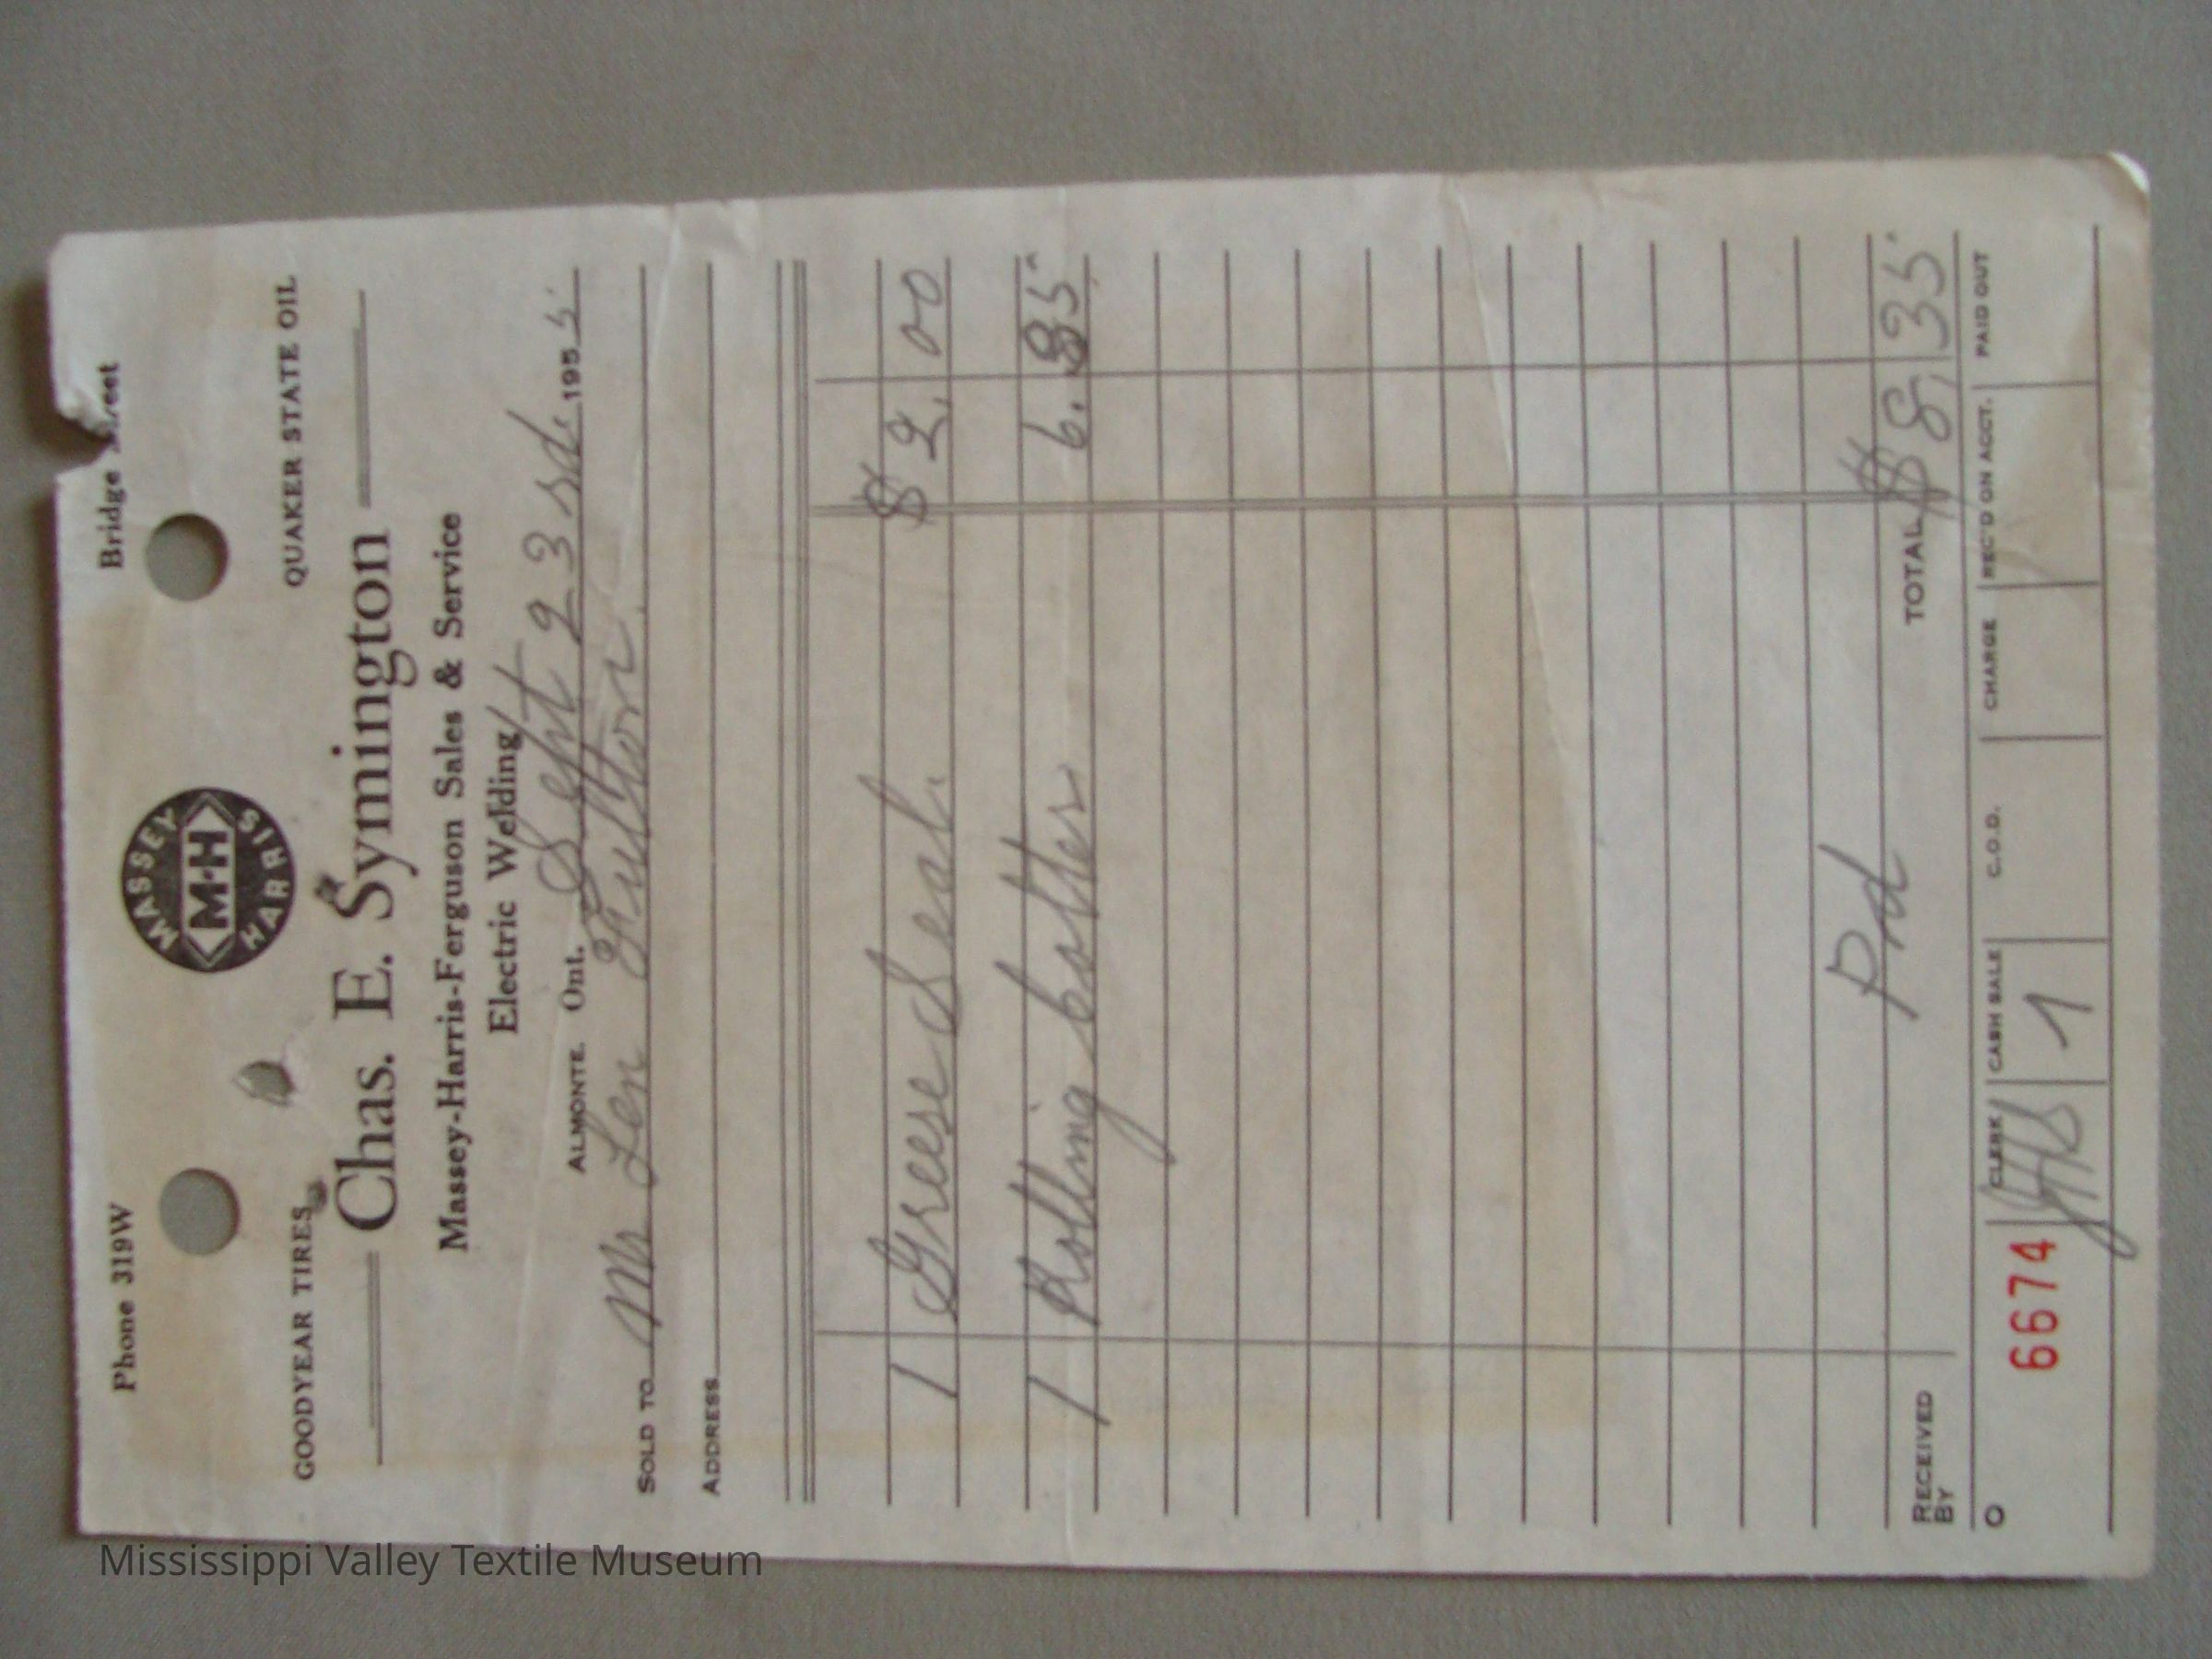 Phone 319W Bridge Street
MASSEY HARRIS
M-H
GOODYEAR TIRES QUAKER STATE OIL
Chas. E. Symington
Massey-Harris-Ferguson Sales & Service
Electric Welding
ALMONTE Ont. Sept 23rd 1955
SOLD TO Mr Len Fullton
ADDRESS
1 Greese Seal. $2.00
1 Rolling Cotter 6.35
Pd
RECEIVED BY TOTAL $8.35
CLERK CASH SALE C.O.D. CHARGE REC'D ON ACCT. PAID OUT
O 6674 1
Mississippi Valley Textile Museum